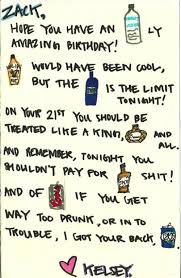 ZACK,
HOPE YOU HAVE AN LY
AMAZING BIRTHDAY!
WOULD HAVE BEEN COOL,
BUT THE IS THE LIMIT
TONIGHT!
ON YOUR 21ST YOU SHOULD BE
TREATED LIKE A KING, AND
ALL.
AND REMEMBER, TONIGHT YOU
SHOULDN'T PAY FOR SHIT!
AND OF IF YOU GET
WAY TOO DRUNK, OR INTO
TROUBLE, I GOT YOUR BACK.
KELSEY.